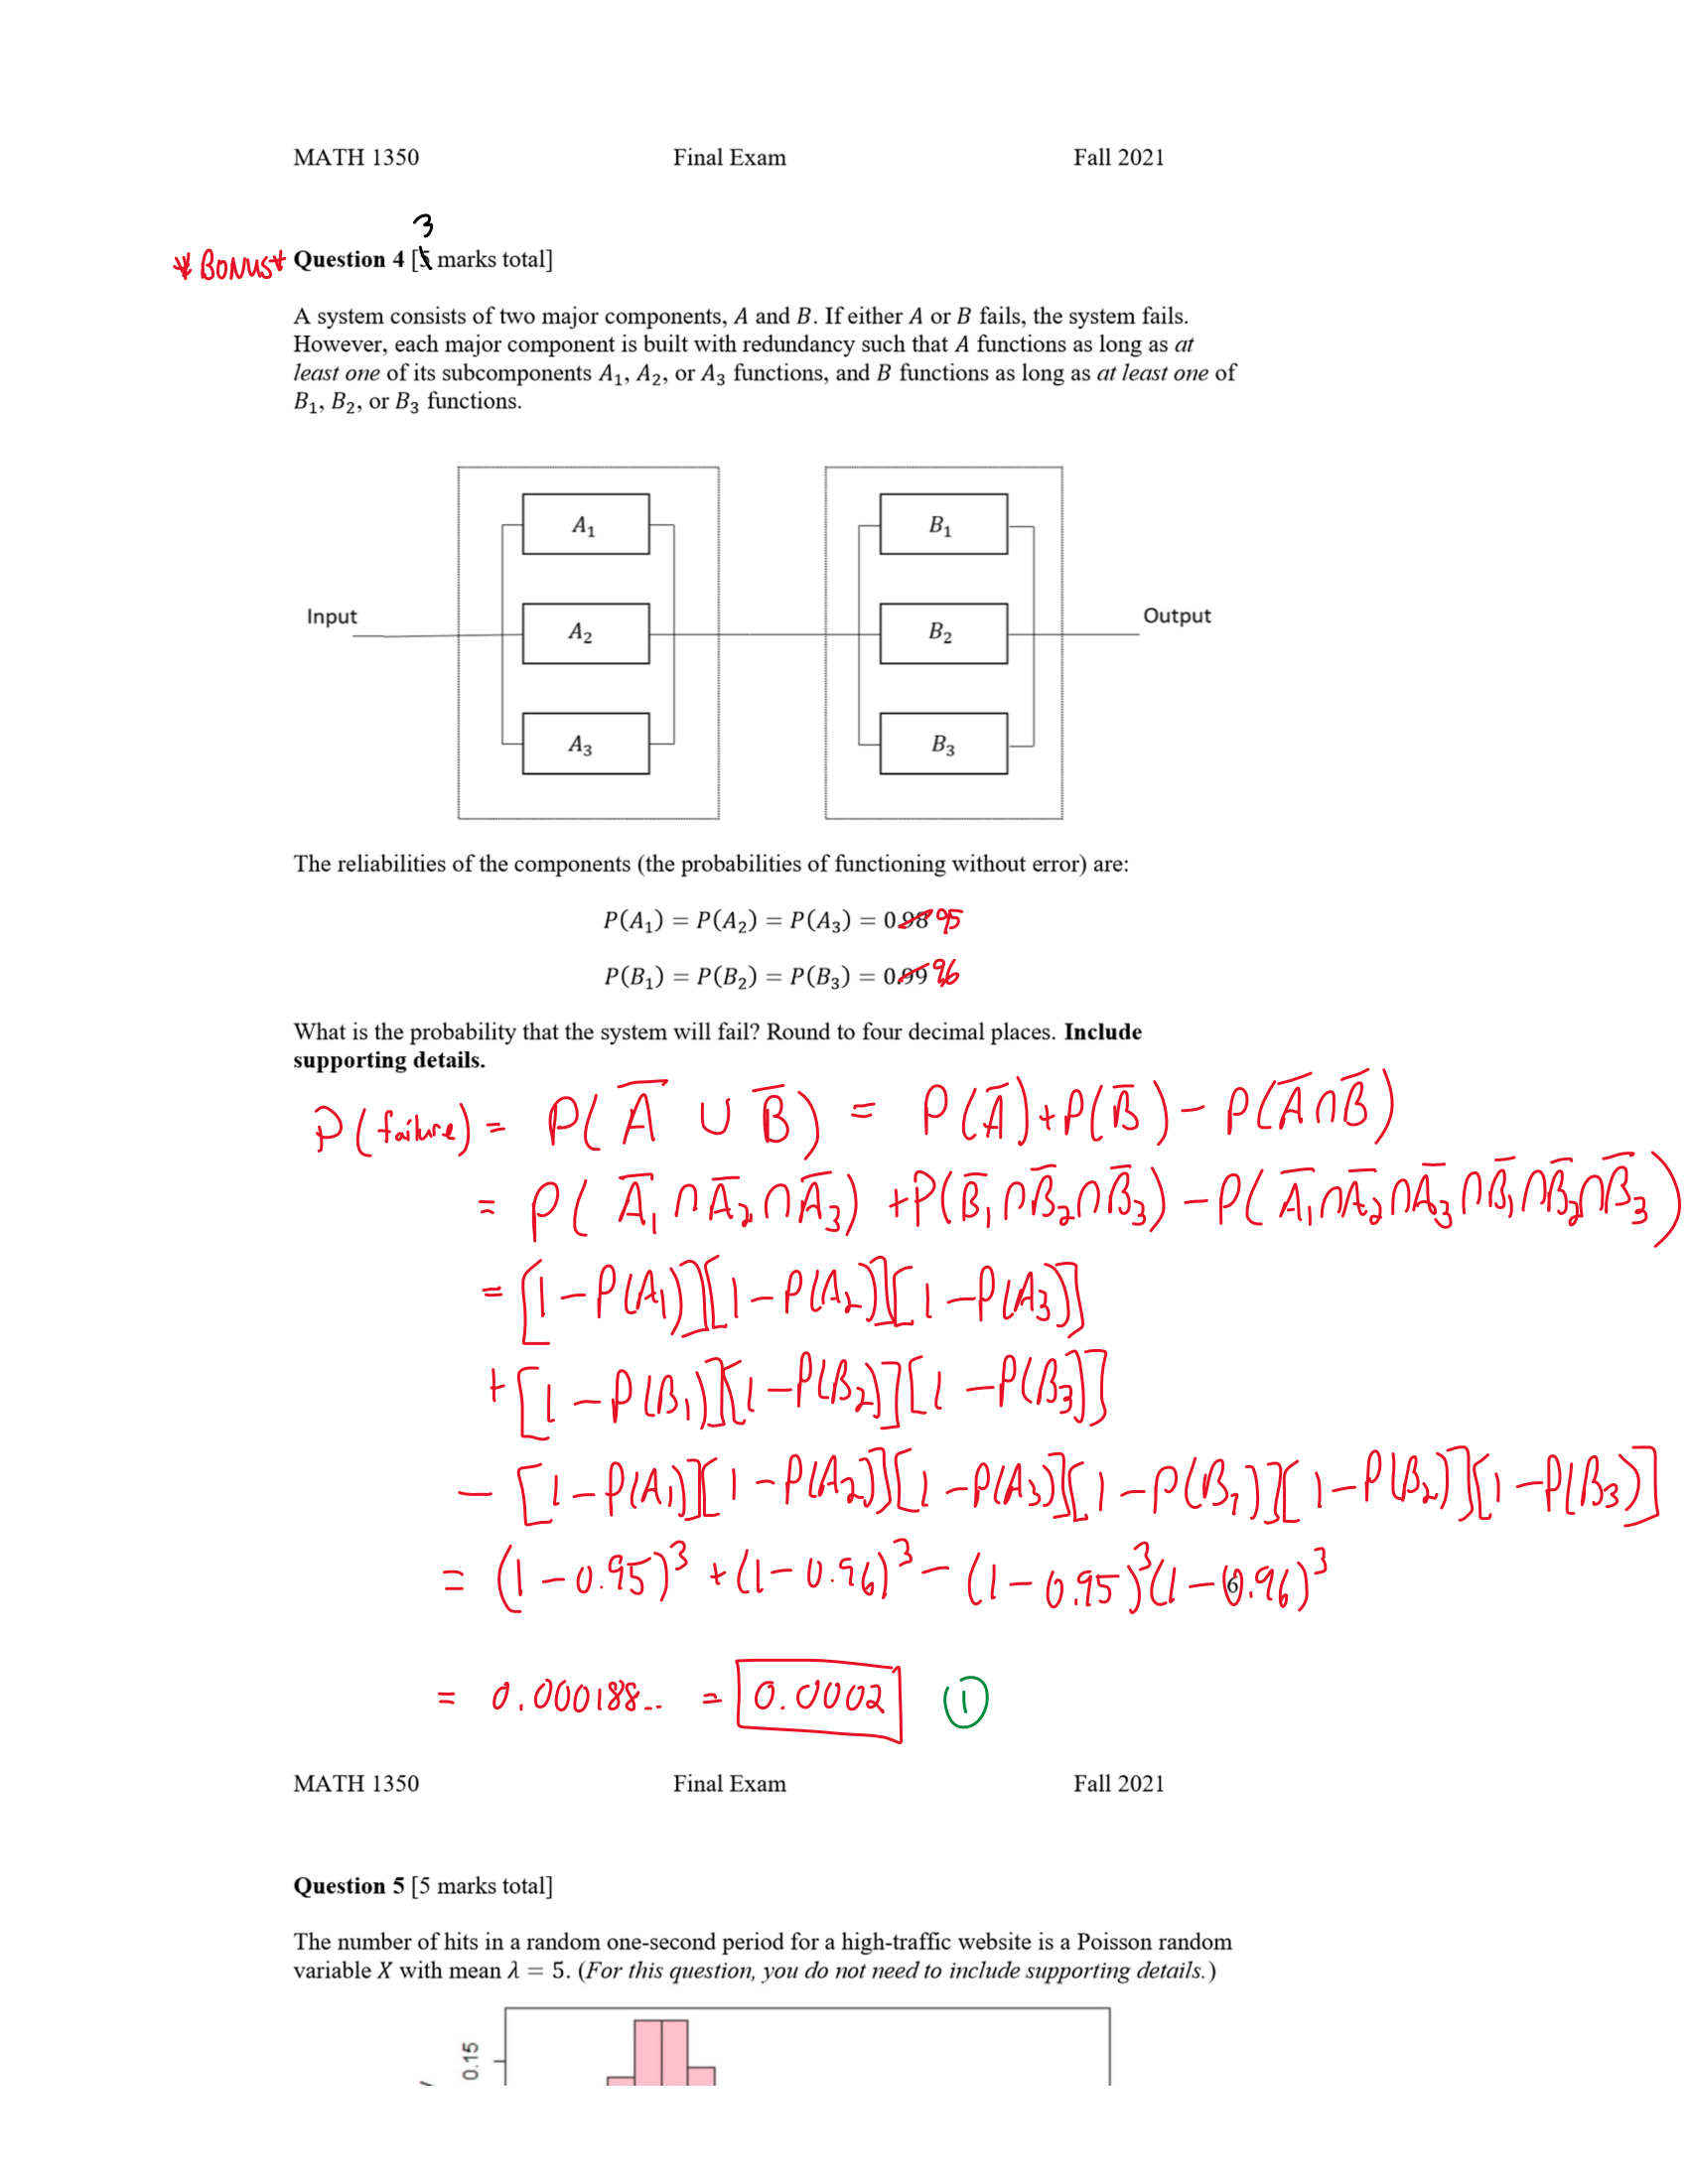 MATH 1350 Final Exam Fall 2021
3
*BONUS* Question 4 [5 marks total]
A system consists of two major components, A and B. If either A or B fails, the system fails.
However, each major component is built with redundancy such that A functions as long as at
least one of its subcomponents A₁, A₂, or A₃ functions, and B functions as long as at least one of
B₁, B₂, or B₃ functions.
A₁ B₁
Input A₂ B₂ Output
A₃ B₃
The reliabilities of the components (the probabilities of functioning without error) are:
P(A₁) = P(A₂) = P(A₃) = 0.98 95
P(B₁) = P(B₂) = P(B₃) = 0.99 96
What is the probability that the system will fail? Round to four decimal places. Include
supporting details.
P(failure) = P(A̅ ∪ B̅) = P(A̅) + P(B̅) − P(A̅ ∩ B̅)
= P(A̅₁ ∩ A̅₂ ∩ A̅₃) + P(B̅₁ ∩ B̅₂ ∩ B̅₃) − P(A̅₁ ∩ A̅₂ ∩ A̅₃ ∩ B̅₁ ∩ B̅₂ ∩ B̅₃)
= [1 − P(A₁)][1 − P(A₂)][1 − P(A₃)]
+ [1 − P(B₁)][1 − P(B₂)][1 − P(B₃)]
− [1 − P(A₁)][1 − P(A₂)][1 − P(A₃)][1 − P(B₁)][1 − P(B₂)][1 − P(B₃)]
= (1 − 0.95)³ + (1 − 0.96)³ − (1 − 0.95)³(1 − 0.96)³
6
= 0.000188.. = 0.0002 1
MATH 1350 Final Exam Fall 2021
Question 5 [5 marks total]
The number of hits in a random one-second period for a high-traffic website is a Poisson random
variable X with mean λ = 5. (For this question, you do not need to include supporting details.)
0.15